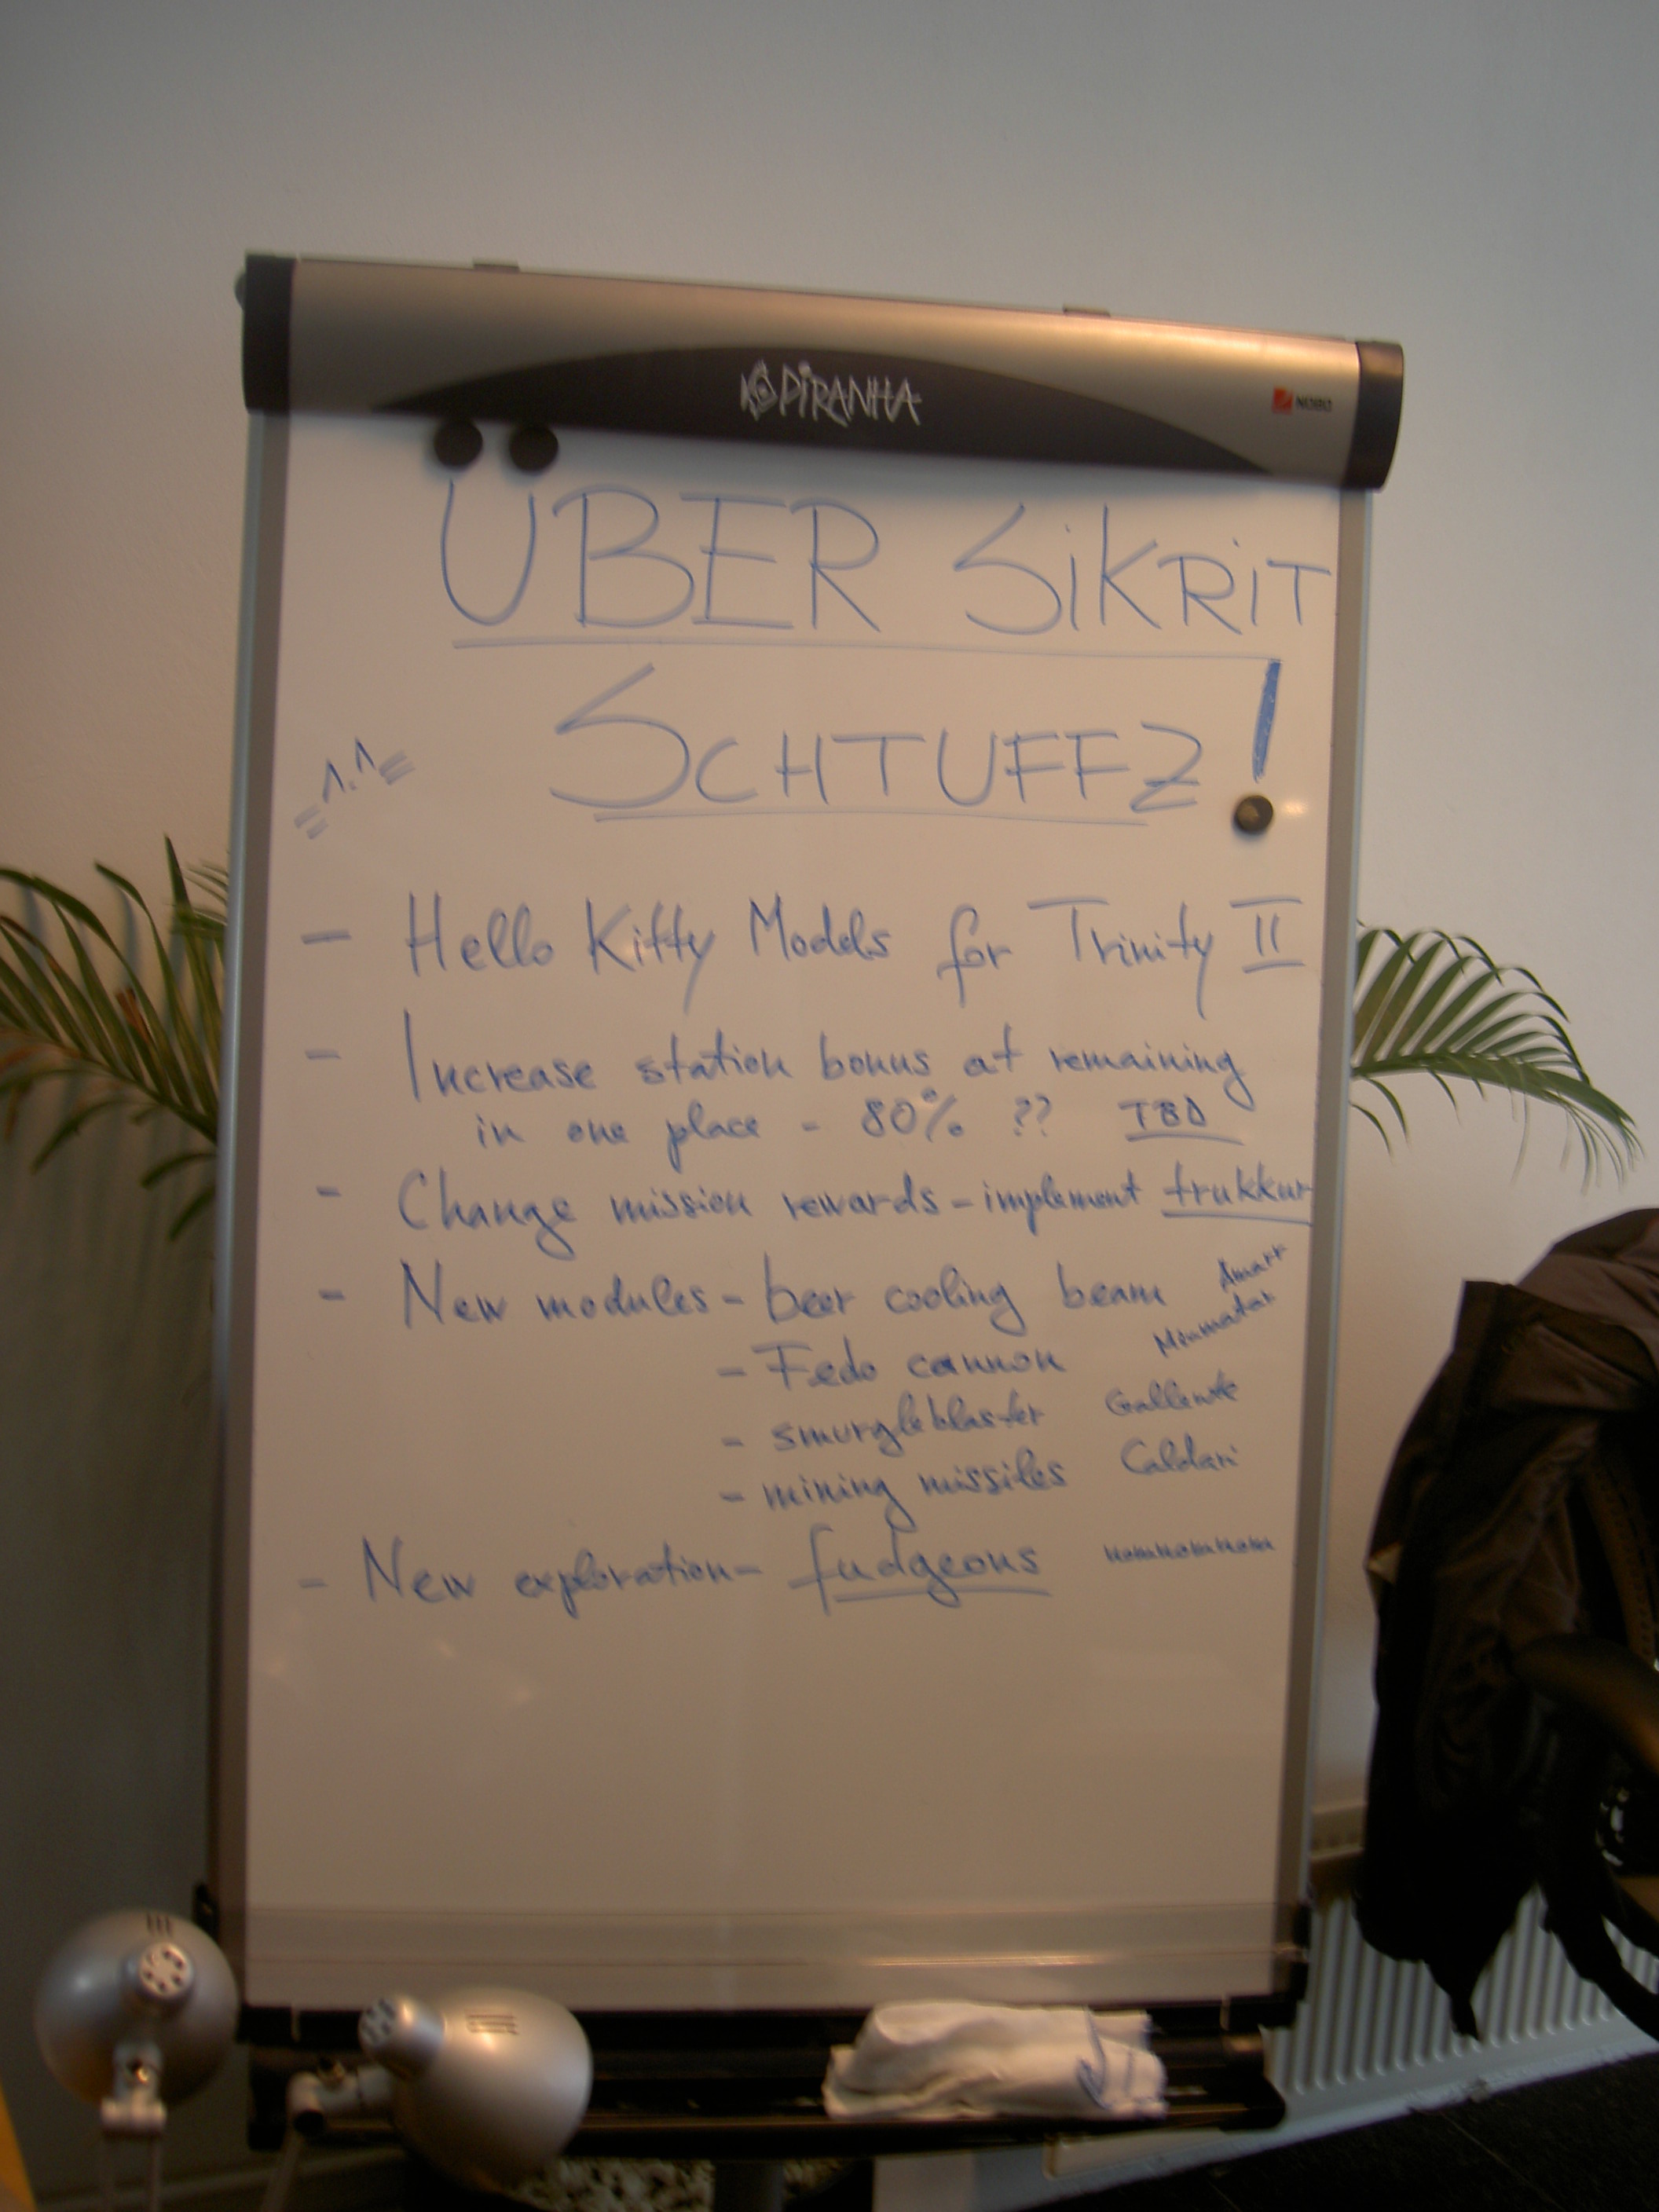 PIRANHA
NOBO
ÜBER SiKRiT
SCHTUFFZ!
- Hello Kitty Models for Trinity II
- Increase station bonus at remaining
in one place - 80% ?? TBD
- Change mission rewards - implement trukkur
- New modules - beer cooling beam Amarr
- Fedo cannon Minmatar
- smurgleblaster Gallente
- mining missiles Caldari
- New exploration - fudgeons nomnomnom